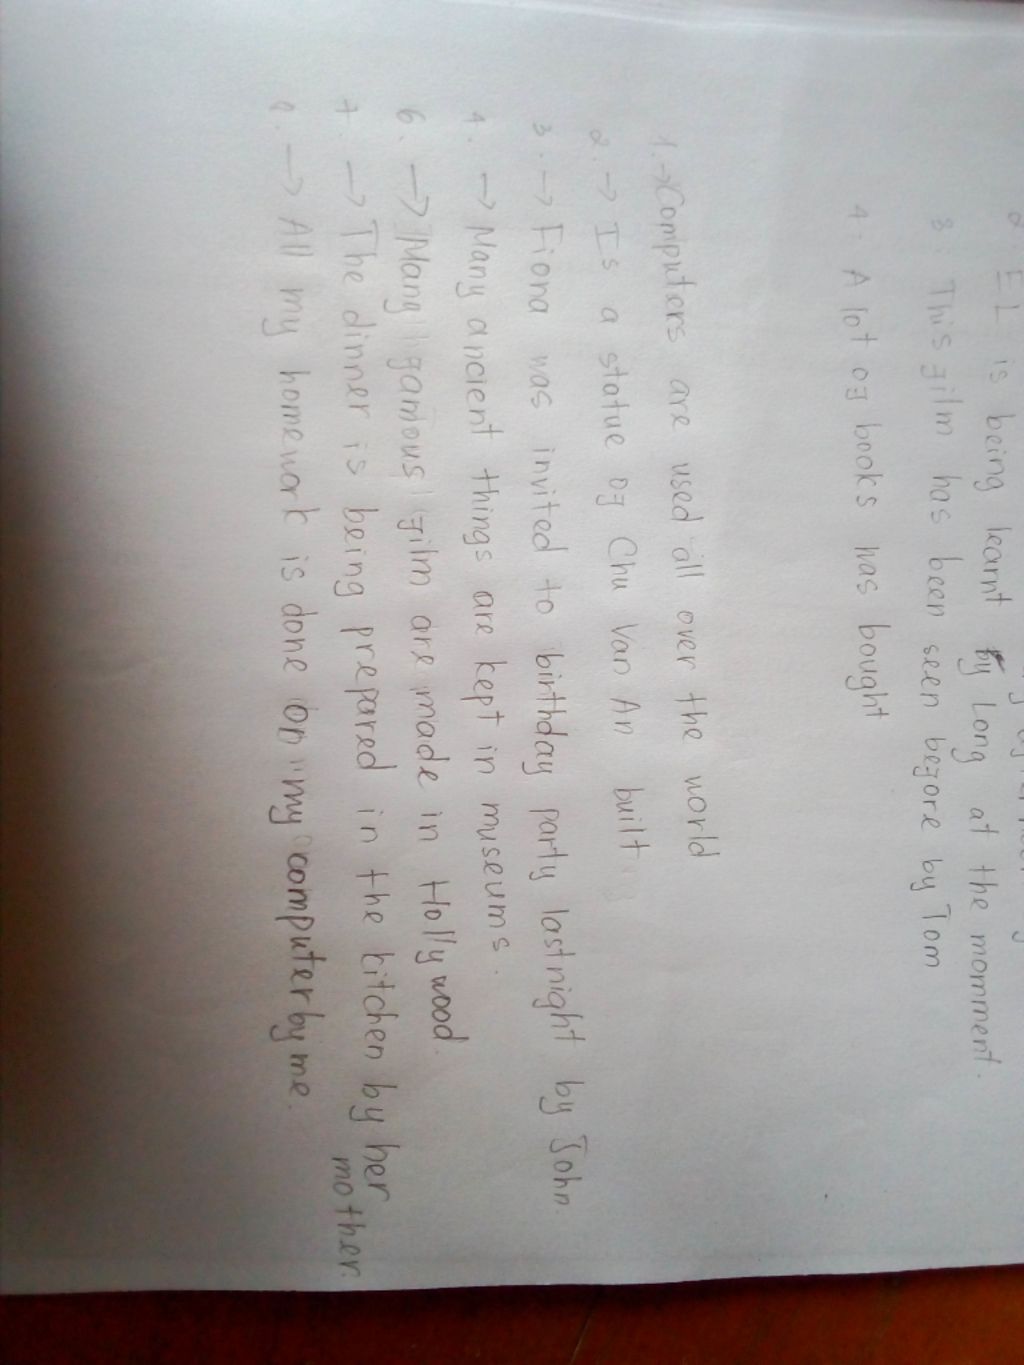 2. EL is being learnt by Long at the momment.
3. This film has been seen before by Tom
4. A lot of books was bought
1. → Computers are used all over the world
2. → Is a statue of Chu Van An built
3. → Fiona was invited to birthday party last night by John.
4. → Many ancient things are kept in museums.
6. → Many famous film are made in Hollywood.
7. → The dinner is being prepared in the kitchen by her
mother.
8. → All my homework is done on my computer by me.